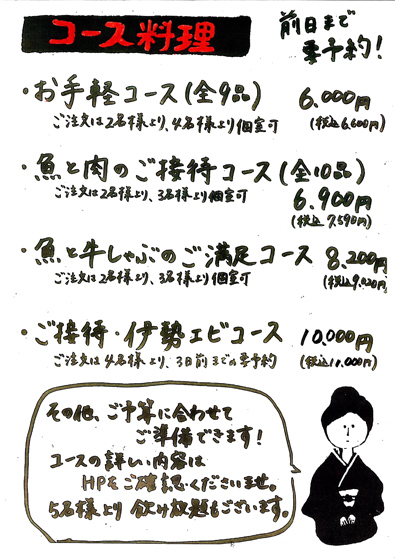 コース料理
前日まで
要予約!
・お手軽コース(全9品) 6.000円
ご注文は2名様より、4名様より個室可 (税込6,600円)
・魚と肉のご接待コース(全10品)
ご注文は2名様より、3名様より個室可 6.900円
(税込7,590円)
・魚と牛しゃぶのご満足コース 8.200円
ご注文は2名様より、3名様より個室可 (税込9,020円)
・ご接待・伊勢エビコース 10.000円
ご注文は4名様より、3日前までの要予約 (税込11,000円)
その他、ご予算に合わせて
ご準備できます!
コースの詳しい内容は
HPをご確認くださいませ。
5名様より飲み放題もございます。